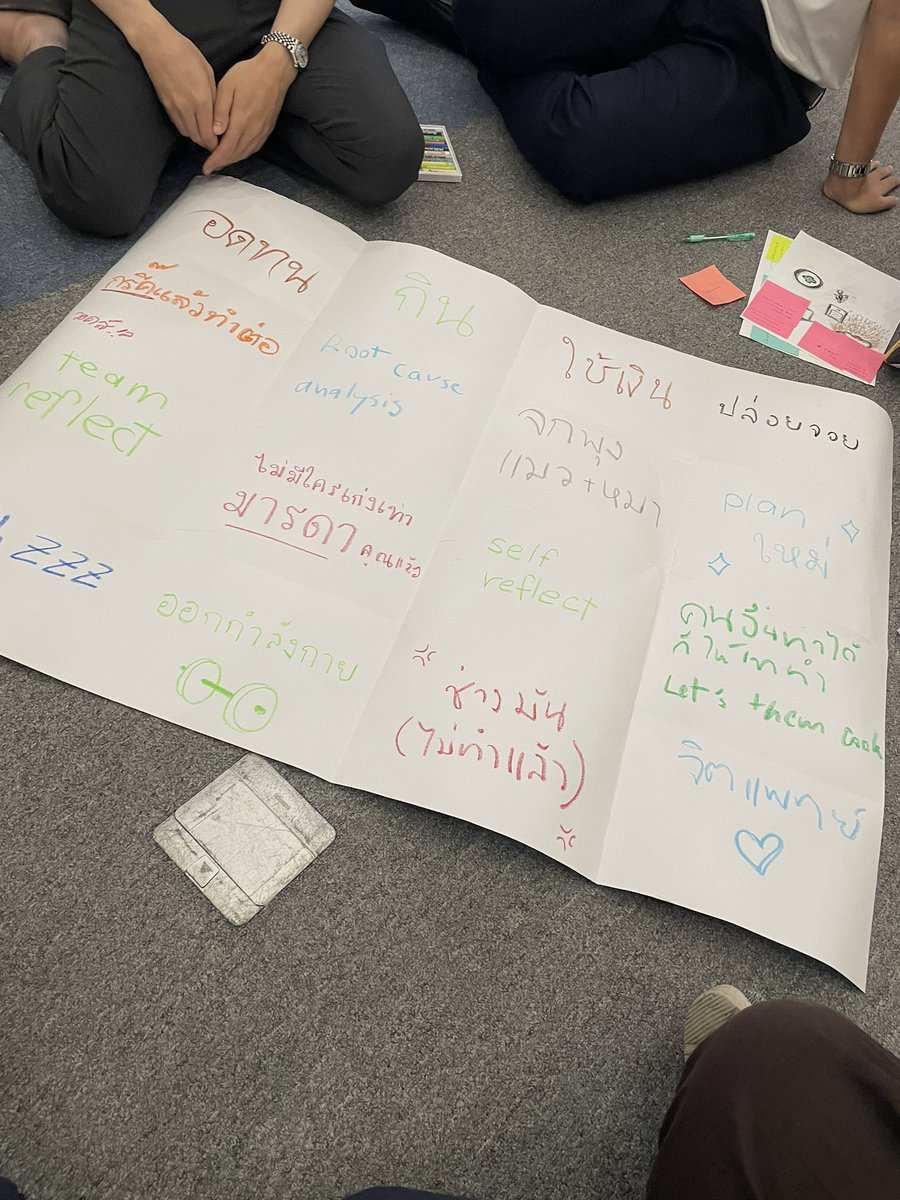 อดทน
กรี๊ดแล้วทำต่อ
team
reflect
ZZZ
กิน
Root cause
analysis
ไม่มีใครเก่งเท่า
มารดา คุณแล้ว
ออกกำลังกาย
ใช้เงิน
จกพุง
แมว+หมา
self
reflect
ช่างมัน
(ไม่ทำแล้ว)
ปล่อยจอย
plan
ใหม่
คนอื่นทำได้
ก็ให้เขาทำ
Let's them cook
จิตแพทย์